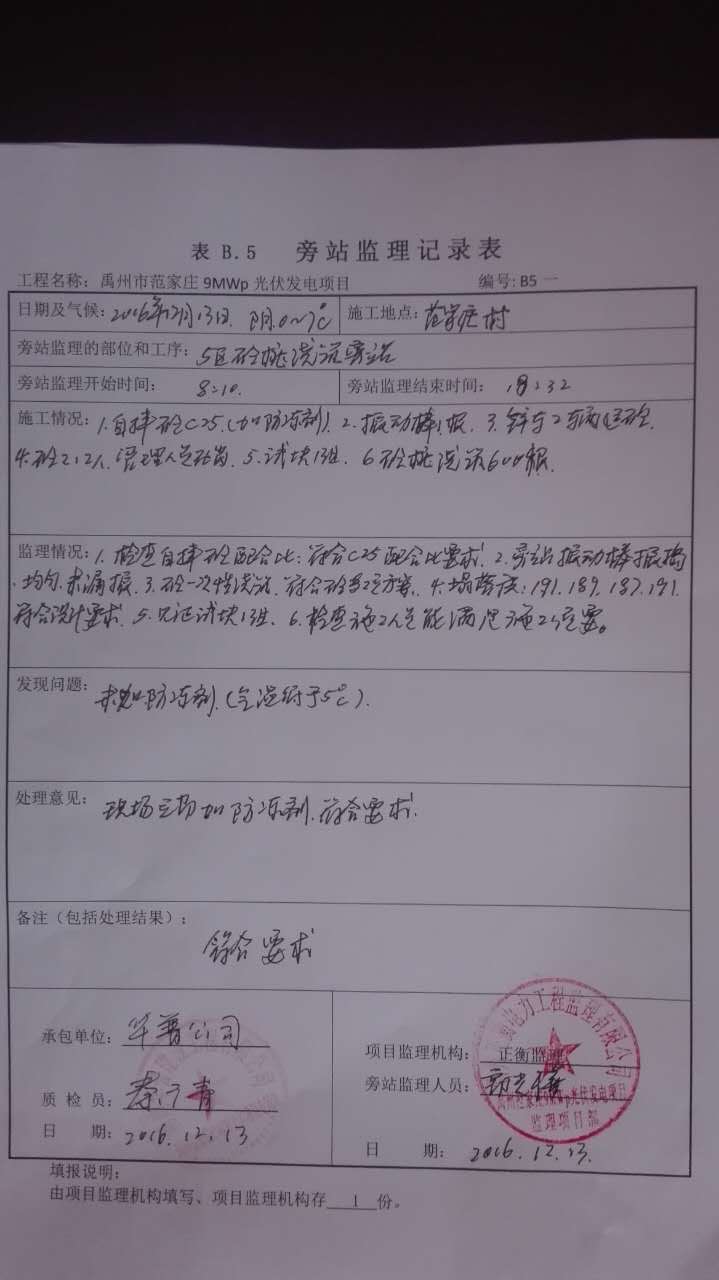 表 B.5 旁站监理记录表
工程名称：禹州市范家庄9MWp光伏发电项目 编号：B5 一
日期及气候：2016年12月13日. 阴.0~7℃ 施工地点：范家庄村
旁站监理的部位和工序：5区砼桩浇筑旁站
旁站监理开始时间： 8:10. 旁站监理结束时间： 18:32
施工情况：1.自拌砼C25.(加防冻剂). 2.振动棒1根. 3.铲车2车辆运砼.
4.砼工:2人.管理人员 5.试块1组. 6.砼桩浇筑600根.
监理情况：1.检查自拌砼配合比：符合C25配合比要求. 2.旁站振动棒振捣
均匀.未漏振. 3.砼一次性浇筑.符合砼 方案. 4.塌落度：191.189.187.191.
符合设计要求. 5.见证试块1组. 6.检查施工人员能满足施工 要。
发现问题：未加防冻剂.(气温 于5℃).
处理意见：现场立场加防冻剂.符合要求.
备注（包括处理结果）：
符合要求
承包单位：华普公司
项目监理机构： 正衡监理
旁站监理人员：
质 检 员：
日 期：2016.12.13
日 期：2016.12.13.
电力工程监理有限公司
光伏发电项目
监理项目部
填报说明：
由项目监理机构填写、项目监理机构存 1 份。